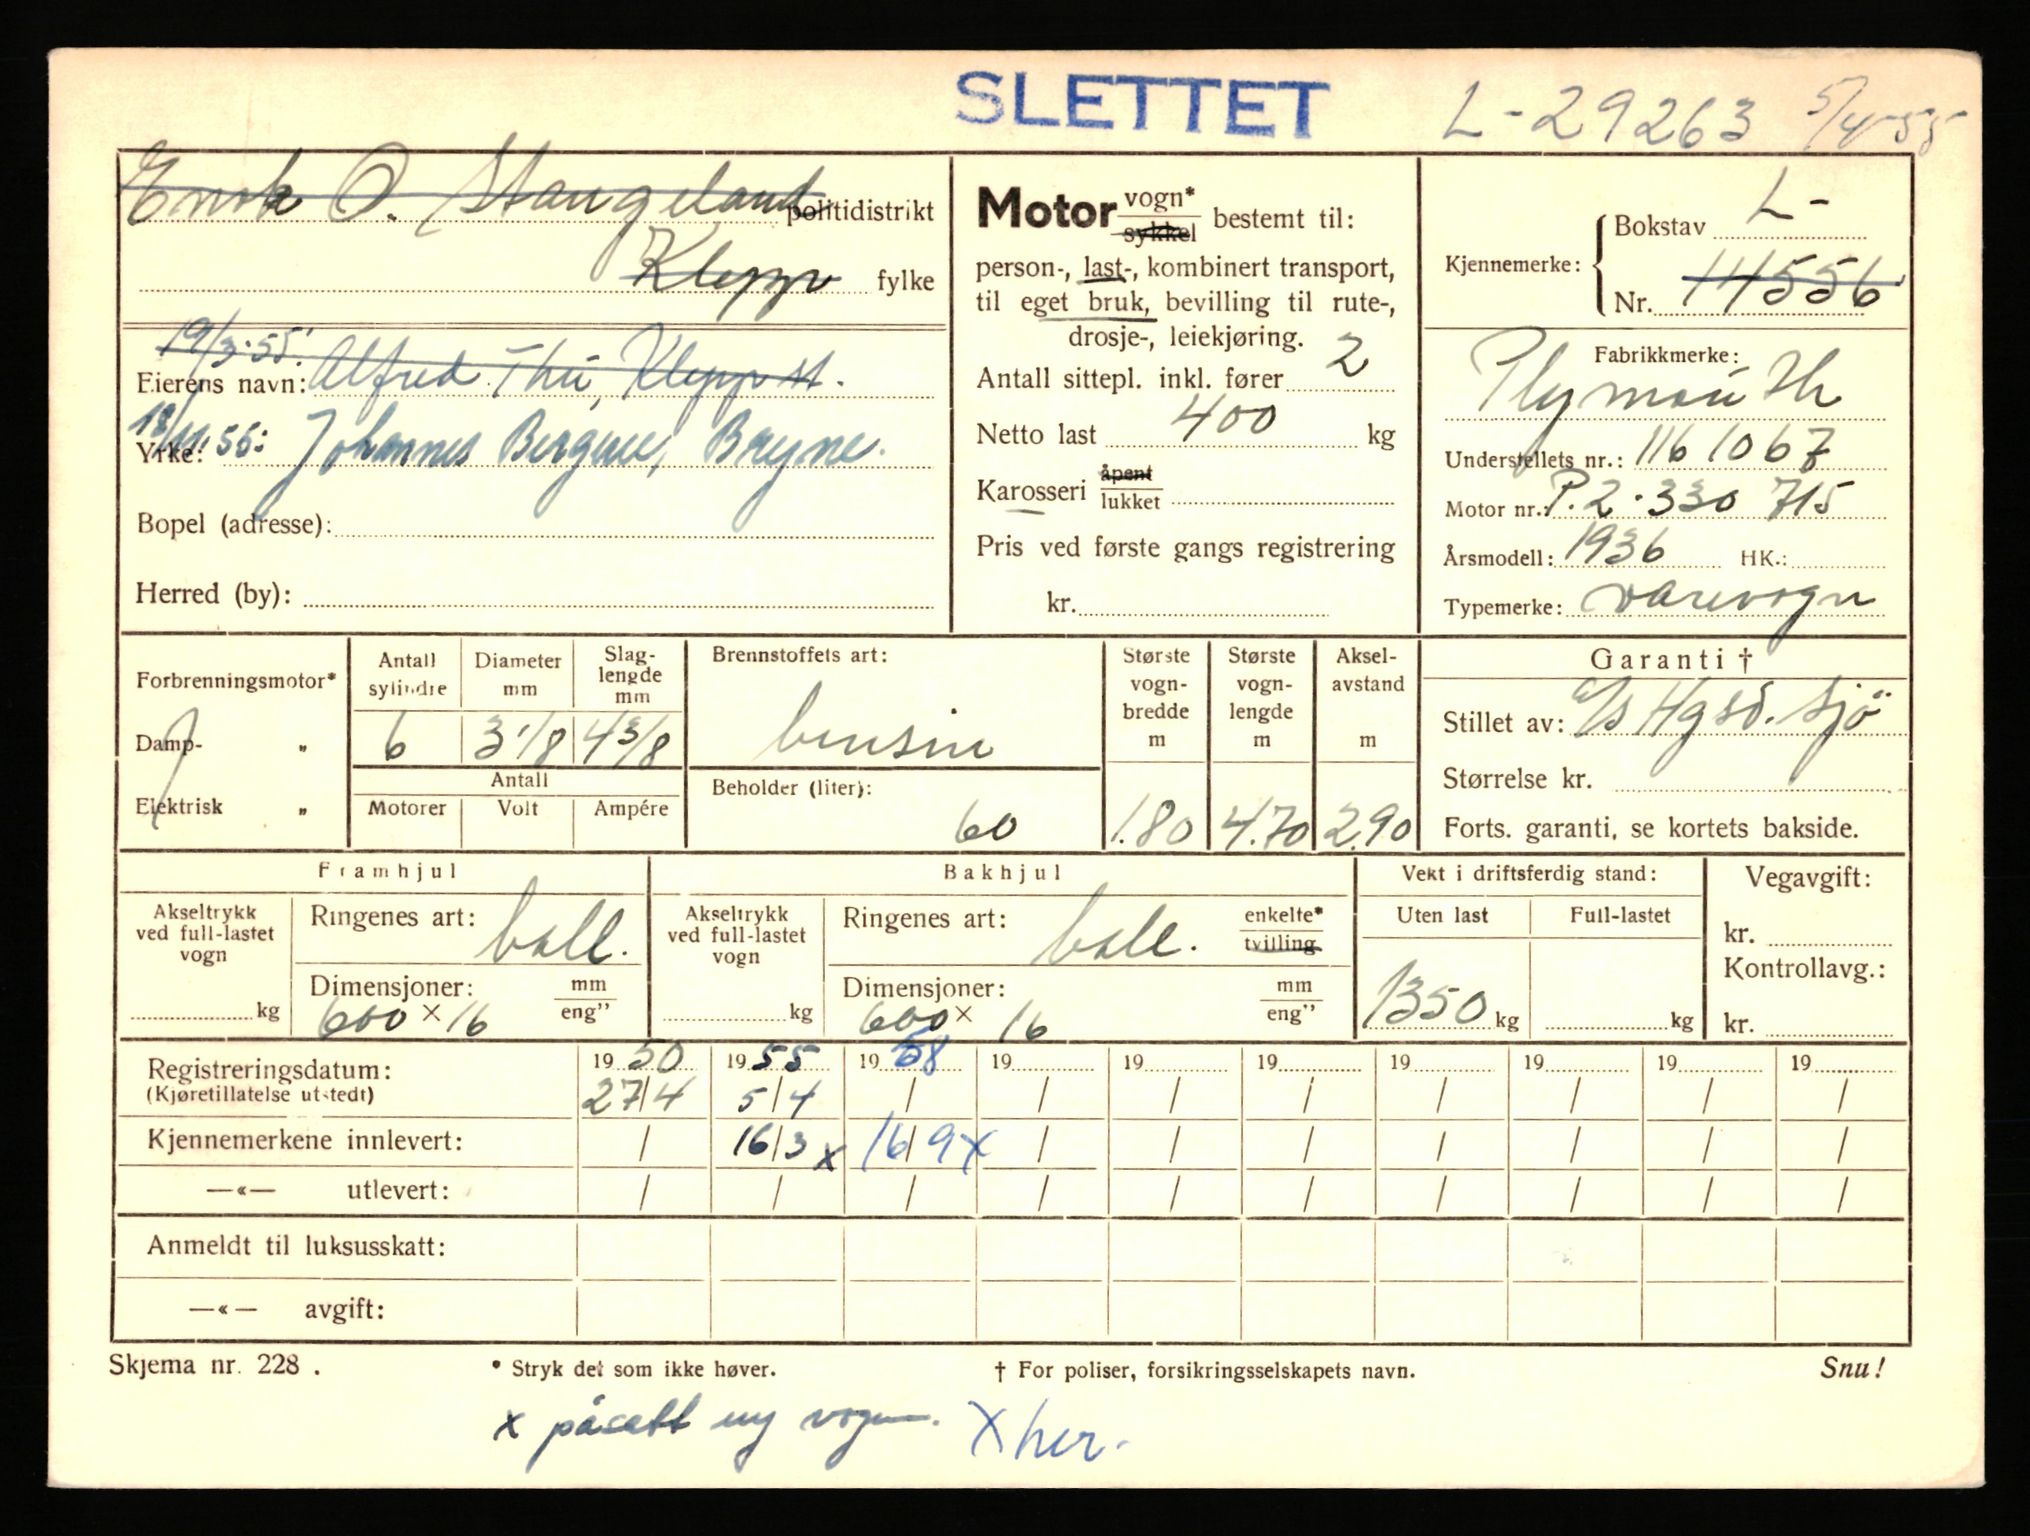 SLETTET L-29263 5/4-55
Enok O. Stangeland politidistrikt
Klepp fylke
19/3-55: Eierens navn: Alfred Thu, Klepp st.
18/11-55: Yrke: Johannes Bergene, Bryne.
Bopel (adresse):
Herred (by):
Motor vogn* sykkel bestemt til:
person-, last-, kombinert transport,
til eget bruk, bevilling til rute-,
drosje-, leiekjøring.
Antall sittepl. inkl. fører 2
Netto last 400 kg
Karosseri åpent lukket
Pris ved første gangs registrering
kr.
Kjennemerke: Bokstav L-
Nr. 14556
Fabrikkmerke:
Plymouth
Understellets nr.: 1161067
Motor nr.: P.2.330 715
Årsmodell: 1936 HK.:
Typemerke: varevogn
Forbrenningsmotor*
Damp- „
Elektrisk „
Antall sylindre Diameter mm Slaglengde mm
6 3 1/8 4 3/8
Antall
Motorer Volt Ampére
Brennstoffets art:
bensin
Beholder (liter):
60
Største vognbredde m 1.80
Største vognlengde m 4.70
Akselavstand m 2.90
Garanti †
Stillet av: a/s Hgsd. Sjö
Størrelse kr.
Forts. garanti, se kortets bakside.
Framhjul
Akseltrykk ved full-lastet vogn
kg
Ringenes art: ball.
Dimensjoner: mm eng”
600 × 16
Bakhjul
Akseltrykk ved full-lastet vogn
kg
Ringenes art: ball. enkelte* tvilling
Dimensjoner: mm eng”
600 × 16
Vekt i driftsferdig stand:
Uten last Full-lastet
1350 kg kg
Vegavgift:
kr.
Kontrollavg.:
kr.
Registreringsdatum: 19 50 19 55 19 58 19 19 19 19 19 19 19
(Kjøretillatelse utstedt) 27/4 5/4 / / / / / / / /
Kjennemerkene innlevert: / 16/3 x 16/9 x / / / / / / /
—«— utlevert: / / / / / / / / / /
Anmeldt til luksusskatt:
—«— avgift:
Skjema nr. 228 . * Stryk det som ikke høver. † For poliser, forsikringsselskapets navn. Snu!
x påsatt ny vogn. X her.